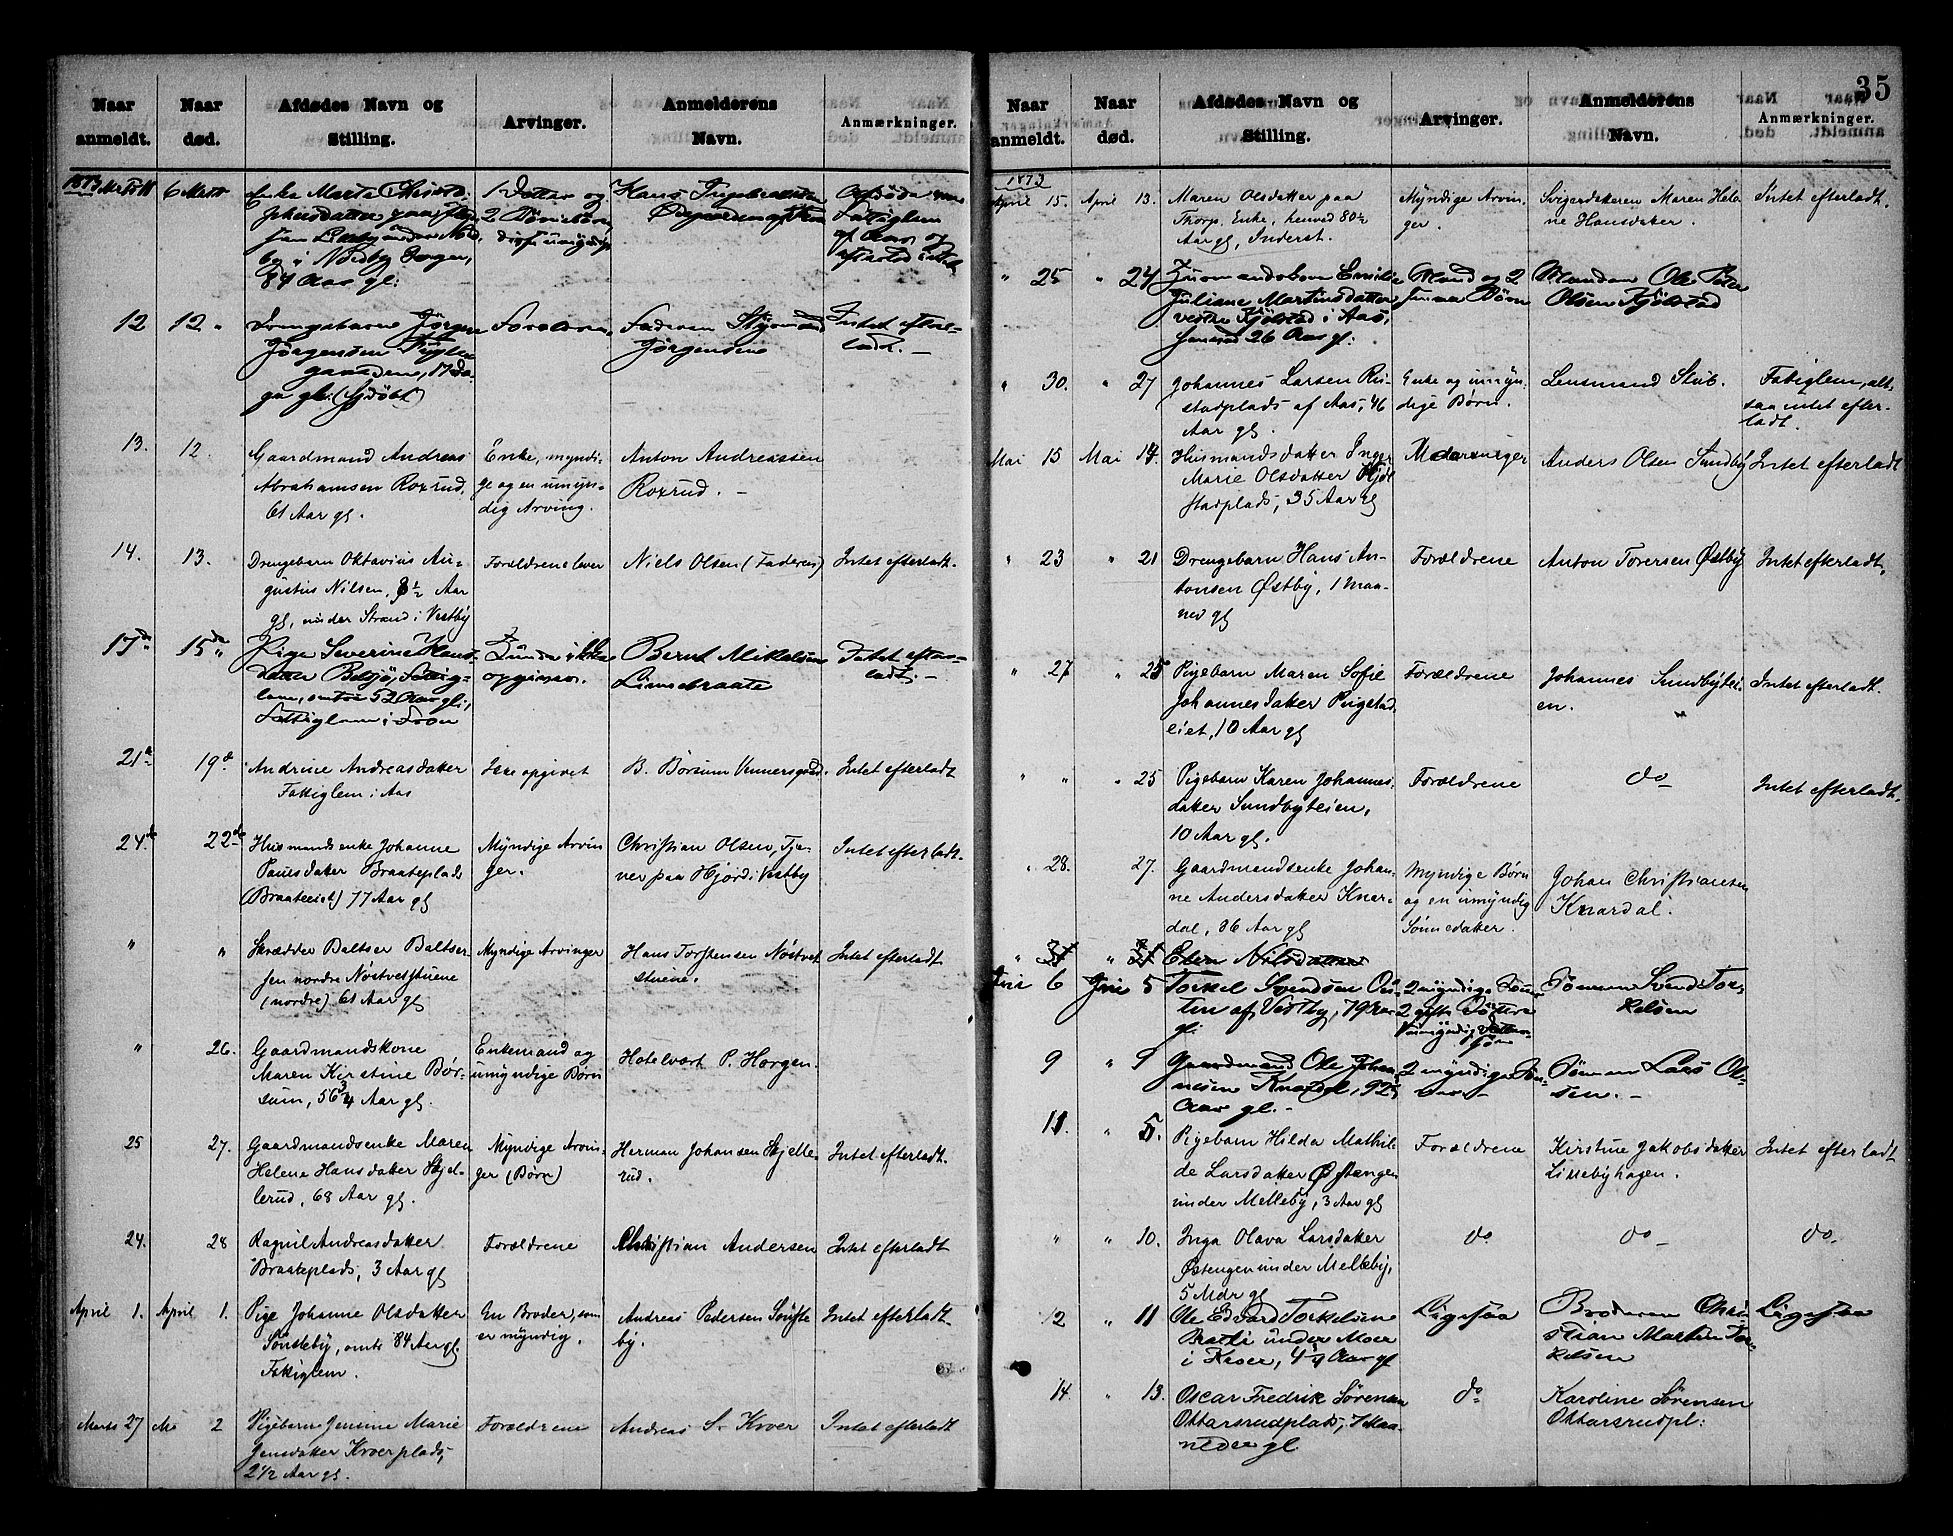 35
Naar anmeldt.
Naar død.
Afdødes Navn og Stilling.
Arvinger.
Anmelderens Navn.
Anmærkninger.
1873 6
Enke Marta
84 Aar gl.
1 Datter og
2
Hans
12 12 "
Jørgen
Jørgensen
Forældrene
Faderen
Jørgensen
Intet efter-
ladt. —
13. 12.
Gaardmand Andreas
Abrahamsen Roxrud,
61 Aar gl.
Enke, myndi-
ge og en umyn-
dig Arving.
Anton Andreassen
Roxrud. —
14. 13.
Drengebarn Oktavius Au-
gustus Nilsen,
gl, under Strand i Vestby
Forældrene lever
Niels Olsen (Faderen)
Intet efterladt.
17de 15de
Pige Severine Hans-
datter
Kunde ikke
opgives.
Bernt Mikelsen
Intet efter-
ladt. —
21de 19de
Andrine Andreasdatter
Fattiglem i Aas
Ikke opgivet
B. Børsum
Intet efterladt
24de 22de
Husmandsenke Johanne
Paulsdatter Braateplads
(Braateeiet) 77 Aar gl
Myndige Arvin
ger.
Christian Olsen, Tje-
ner paa Hjord i Vestby
Intet efterladt.
" "
Skrædder Baltser Baltser-
sen nordre Nøstvetstuene
(nordre) 61 Aar gl
Myndige Arvinger
Hans Torstensen Nøstvet
stuene.
Intet efterladt
" 26.
Gaardmandskone
Maren Kirstine Bør-
sum, 56 3/4 Aar gl.
Enkemand og
umyndige Børn
Hotelvært P. Horgen.
25 27.
Gaardmandsenke Maren
Helene Hansdatter Skjel-
lerud, 68 Aar gl.
Myndige Arvin-
ger (Børn)
Herman Johansen Skjelle-
rud.
Intet efterladt.
24. 28
Ragnil Andreasdatter
Braateplads, 3 Aar gl
Forældrene
Christian Andersen
Intet efterladt
April 1. April 1.
Pige Johanne Olsdatter
84 Aar gl.
Fattiglem.
En Broder, som
er myndig.
Andreas Pedersen
by.
Intet efterladt.
Marts 27 M 2
Pigebarn Jensine Marie
Jensdatter Kroerplads,
2 1/2 Aar gl.
Forældrene
Andreas S. Kroer
Intet efterladt
Naar anmeldt.
Naar død.
Afdødes Navn og Stilling.
Arvinger.
Anmelderens Navn.
Anmærkninger.
1873
April 15. April 13.
Maren Olsdatter paa
Thorp, Enke, henved 80
Aar gl, Inderst.
Myndige Arvin-
ger.
Svigerdatteren Maren Hele
ne Hansdatter.
Intet efterladt.
" 25 " 24
Juliane Martinsdatter
vestre Kjølstad i Aas,
26 Aar gl.
Mand og 2
Børn
Manden Ole
Olsen Kjølstad
" 30. " 27
Johannes Larsen Ru-
stadplads af Aas, 46
Aar gl.
Enke og umyn-
dige Børn.
Lensmand Stub.
Fatiglem, alt-
saa intet efter-
ladt.
Mai 15 Mai 14
Husmandsdatter Inger
Marie Olsdatter
35 Aar gl
Anders Olsen Sundby
Intet efterladt
" 23 " 21
Drengebarn Hans An-
tonsen Østby, 1 Maa-
ned gl
Forældrene
Anton Torersen Østby
Intet efterladt.
" 27 " 25
Pigebarn Maren Sofie
Johannesdatter
eiet, 10 Aar gl
Forældrene
Johannes Sundbyei-
en.
Intet efterladt.
" " " 25
Pigebarn Karen Johannes-
datter Sundbyeien,
10 Aar gl.
Forældrene
do
Intet efterladt.
" 28. 27.
Gaardmandsenke Johan-
ne Andersdatter Knar-
dal, 86 Aar gl
Myndige Børn
og en umyndig
Sønnedatter.
Johan Christiansen
Knardal.
" 31 " 31 Elen Nilsdatter
Juni 6 Juni 5
Torkel Svendsen
af Vestby, 79 Aar
gl.
2 myndige Sønner
2 gifte Døttre
Sønnen Svend Tor-
kelsen
9 " 9
Gaardmand Ole Johan-
nesen Knardal, 92
Aar gl. —
2 myndige Søn-
ner —
Sønnen Lars Ol-
sen. —
11. " 5.
Pigebarn Hilda Mathil-
de Larsdatter Østengen
under Melleby, 3 Aar gl
Forældrene
Kirstine Jakobsdatter
Lillebyhagen.
Intet efterladt
" " 10.
Inga Olava Larsdatter
Østengen under Melleby,
5 Mdr gl
do
do
do
12 " 11
Ole Edvard Torkelsen
Braate under Moer
i Kroer, 49 Aar gl
Ligesaa
Broderen Chri-
stian Martin Tor-
kelsen
Ligesaa
14 " 13.
Oscar Fredrik Sørensen
Ottarsrudplads, 7 Maa-
neder gl
do
Karoline Sørensen
Ottarsrudpl: